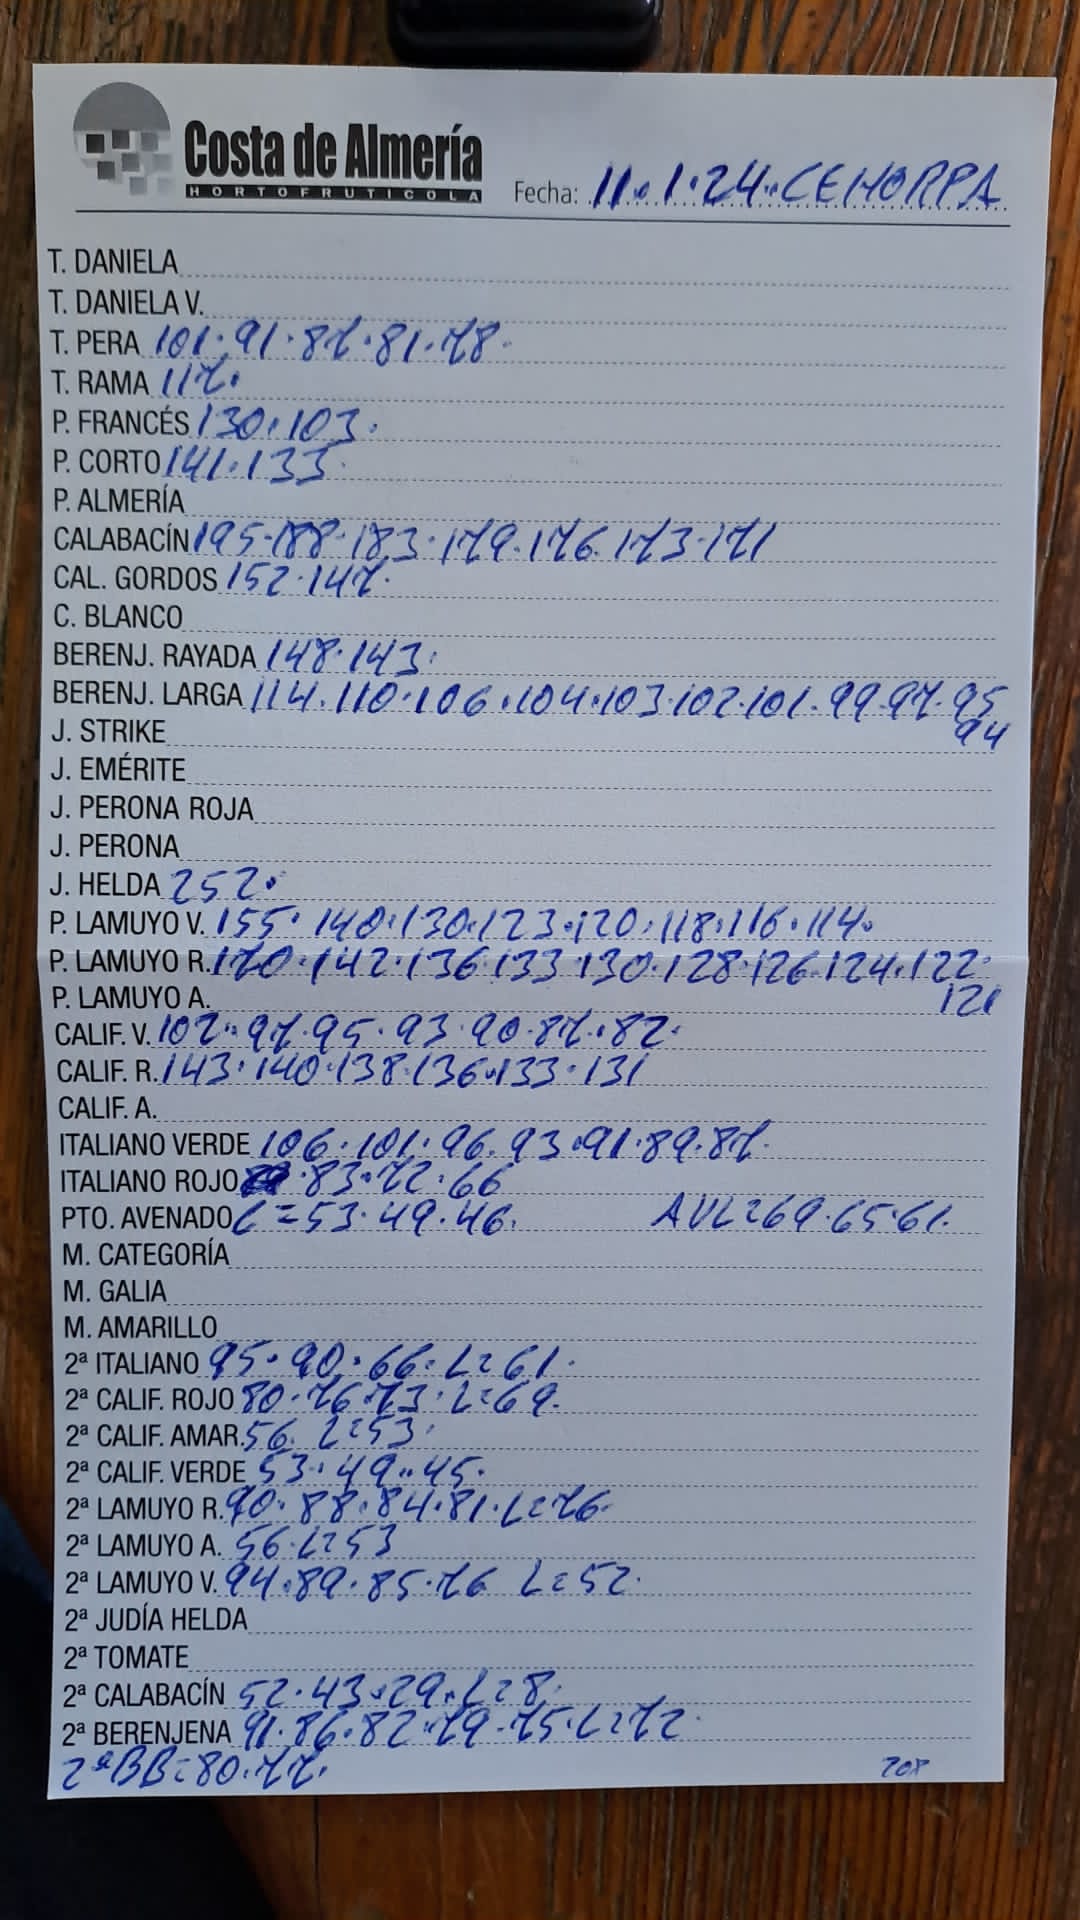 Costa de Almería
HORTOFRUTICOLA
Fecha: 11.1.24.CEHORPA
T. DANIELA
T. DANIELA V.
T. PERA 101.91.87.81.78.
T. RAMA 117.
P. FRANCÉS 130.103.
P. CORTO 141.133.
P. ALMERÍA
CALABACÍN 195.188.183.179.176.173.171
CAL. GORDOS 152.147.
C. BLANCO
BERENJ. RAYADA 148.143.
BERENJ. LARGA 114.110.106.104.103.102.101.99.97.95
94
J. STRIKE
J. EMÉRITE
J. PERONA ROJA
J. PERONA
J. HELDA 252.
P. LAMUYO V. 155.140.130.123.120.118.116.114.
P. LAMUYO R. 170.142.136.133.130.128.126.124.122.
121
P. LAMUYO A.
CALIF. V. 102.97.95.93.90.87.82.
CALIF. R. 143.140.138.136.133.131
CALIF. A.
ITALIANO VERDE 106.101.96.93.91.89.87.
ITALIANO ROJO .83.72.66
PTO. AVENADO L=53.49.46. AVL=69.65.61.
M. CATEGORÍA
M. GALIA
M. AMARILLO
2ª ITALIANO 95.90.66.L=61.
2ª CALIF. ROJO 80.76.73.L=69.
2ª CALIF. AMAR. 56. L=53.
2ª CALIF. VERDE 53.49..45.
2ª LAMUYO R. 90.88.84.81.L=76.
2ª LAMUYO A. 56.L=53
2ª LAMUYO V. 94.89.85.76 L=52.
2ª JUDÍA HELDA
2ª TOMATE
2ª CALABACÍN 52.43.29.L=28.
2ª BERENJENA 91.86.82.79.75.L=72.
2ªBB=80.77.